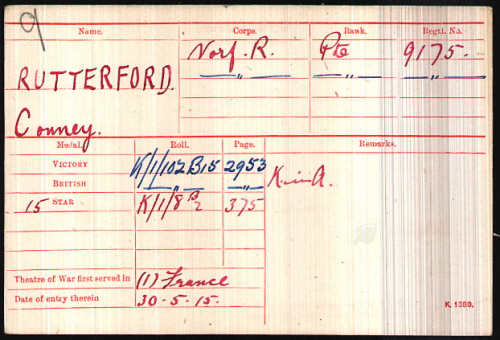 9
Name. Corps. Rank. Regtl. No.
RUTTERFORD. Norf. R. Pte 9175.
" " "
Conney.
Medal. Roll. Page. Remarks.
VICTORY K/1/102 B15 2953
BRITISH " " K. in A.
15 STAR K/1/8 B2 375
Theatre of War first served in (1) France
Date of entry therein 30-5-15.
K. 1380.